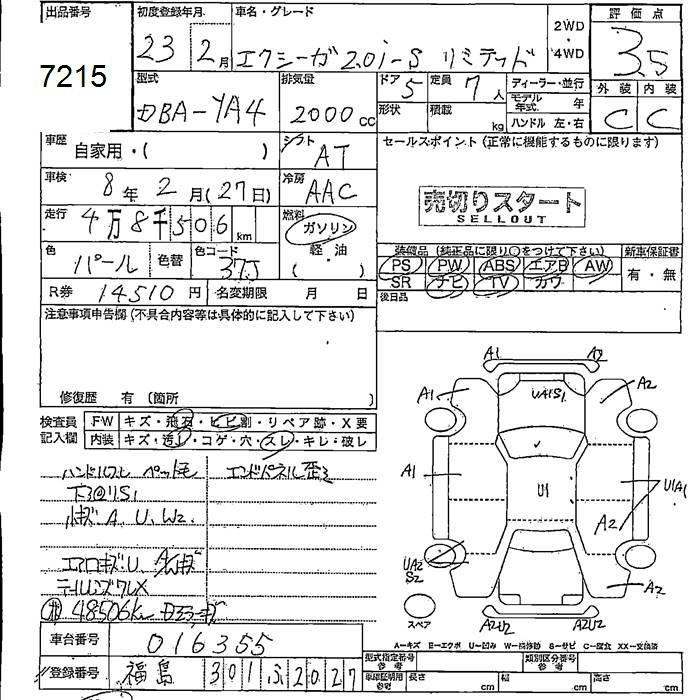 出品番号
7215
初度登録年月
23 2月
車名・グレード
エクシーガ 2.0i-S リミテッド
2WD
・
4WD
評価点
3.5
型式
DBA-YA4
排気量
2000cc
ドア 5
定員 7人
ディーラー・並行
形状
積載 kg
モデル年式 年
ハンドル 左・右
外装 内装
C C
車歴
自家用・( )
シフト
AT
セールスポイント (正常に機能するものに限ります)
車検
8年 2月(27日)
冷房
AAC
売切りスタート
SELLOUT
走行
4万8千506km
燃料
ガソリン
軽・油
( )
色
パール
色替
色コード
37J
装備品 (純正品に限り○をつけて下さい)
新車保証書
PS PW ABS エアB AW
SR ナビ TV カワ
有・無
R券 14510円
名変期限 月 日
後日品
注意事項申告欄(不具合内容等は具体的に記入して下さい)
修復歴 有 〔箇所 〕
検査員
記入欄
FW キズ・飛石・ヒビ割・リペア跡・X要
内装 キズ・汚レ・コゲ・穴・スレ・キレ・破レ
エンドパネル歪ミ
A、U、W2.
48506km
A1 A2
A1 A2
UA1S1
A1
U1
U1A1
A2
UA2
S2
A2
スペア
A2U2 A2U2
A－キズ E－エクボ U－凹み W－補修跡 S－サビ C－腐食 XX－交換済
車台番号 016355
登録番号 福島 301 ふ 2027
型式指定番号
参考
類別区分番号
参考
車庫証明用
参考
長さ cm
幅 cm
高さ cm